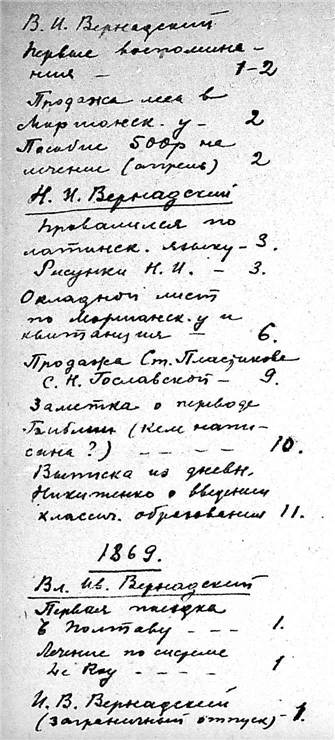 В. И. Вернадский
Первые воспомина-
ния — 1-2
Продажа леса в
Моршанск. у — 2
Пособие 500р на
лечение (апрель) 2
Н. И. Вернадский
Провалился по
латинск. языку — 3.
Рисунки Н. И. — 3.
Окладной лист
по Моршанск. у и
квитанция — 6.
Продажа Ст. Пластикове
С. Н. Гославской — 9.
Заметка о переводе
Библии (кем напи-
сана?) - - - - - 10.
Выписка из дневн.
Никитенко о введении
классич. образования 11.
1869.
Вл. Ив. Вернадский
Первая поездка
в Полтаву - - - - 1.
Лечение по системе
Le Roy - - - - - 1
И. В. Вернадский
(Заграничный отпуск) - 1.